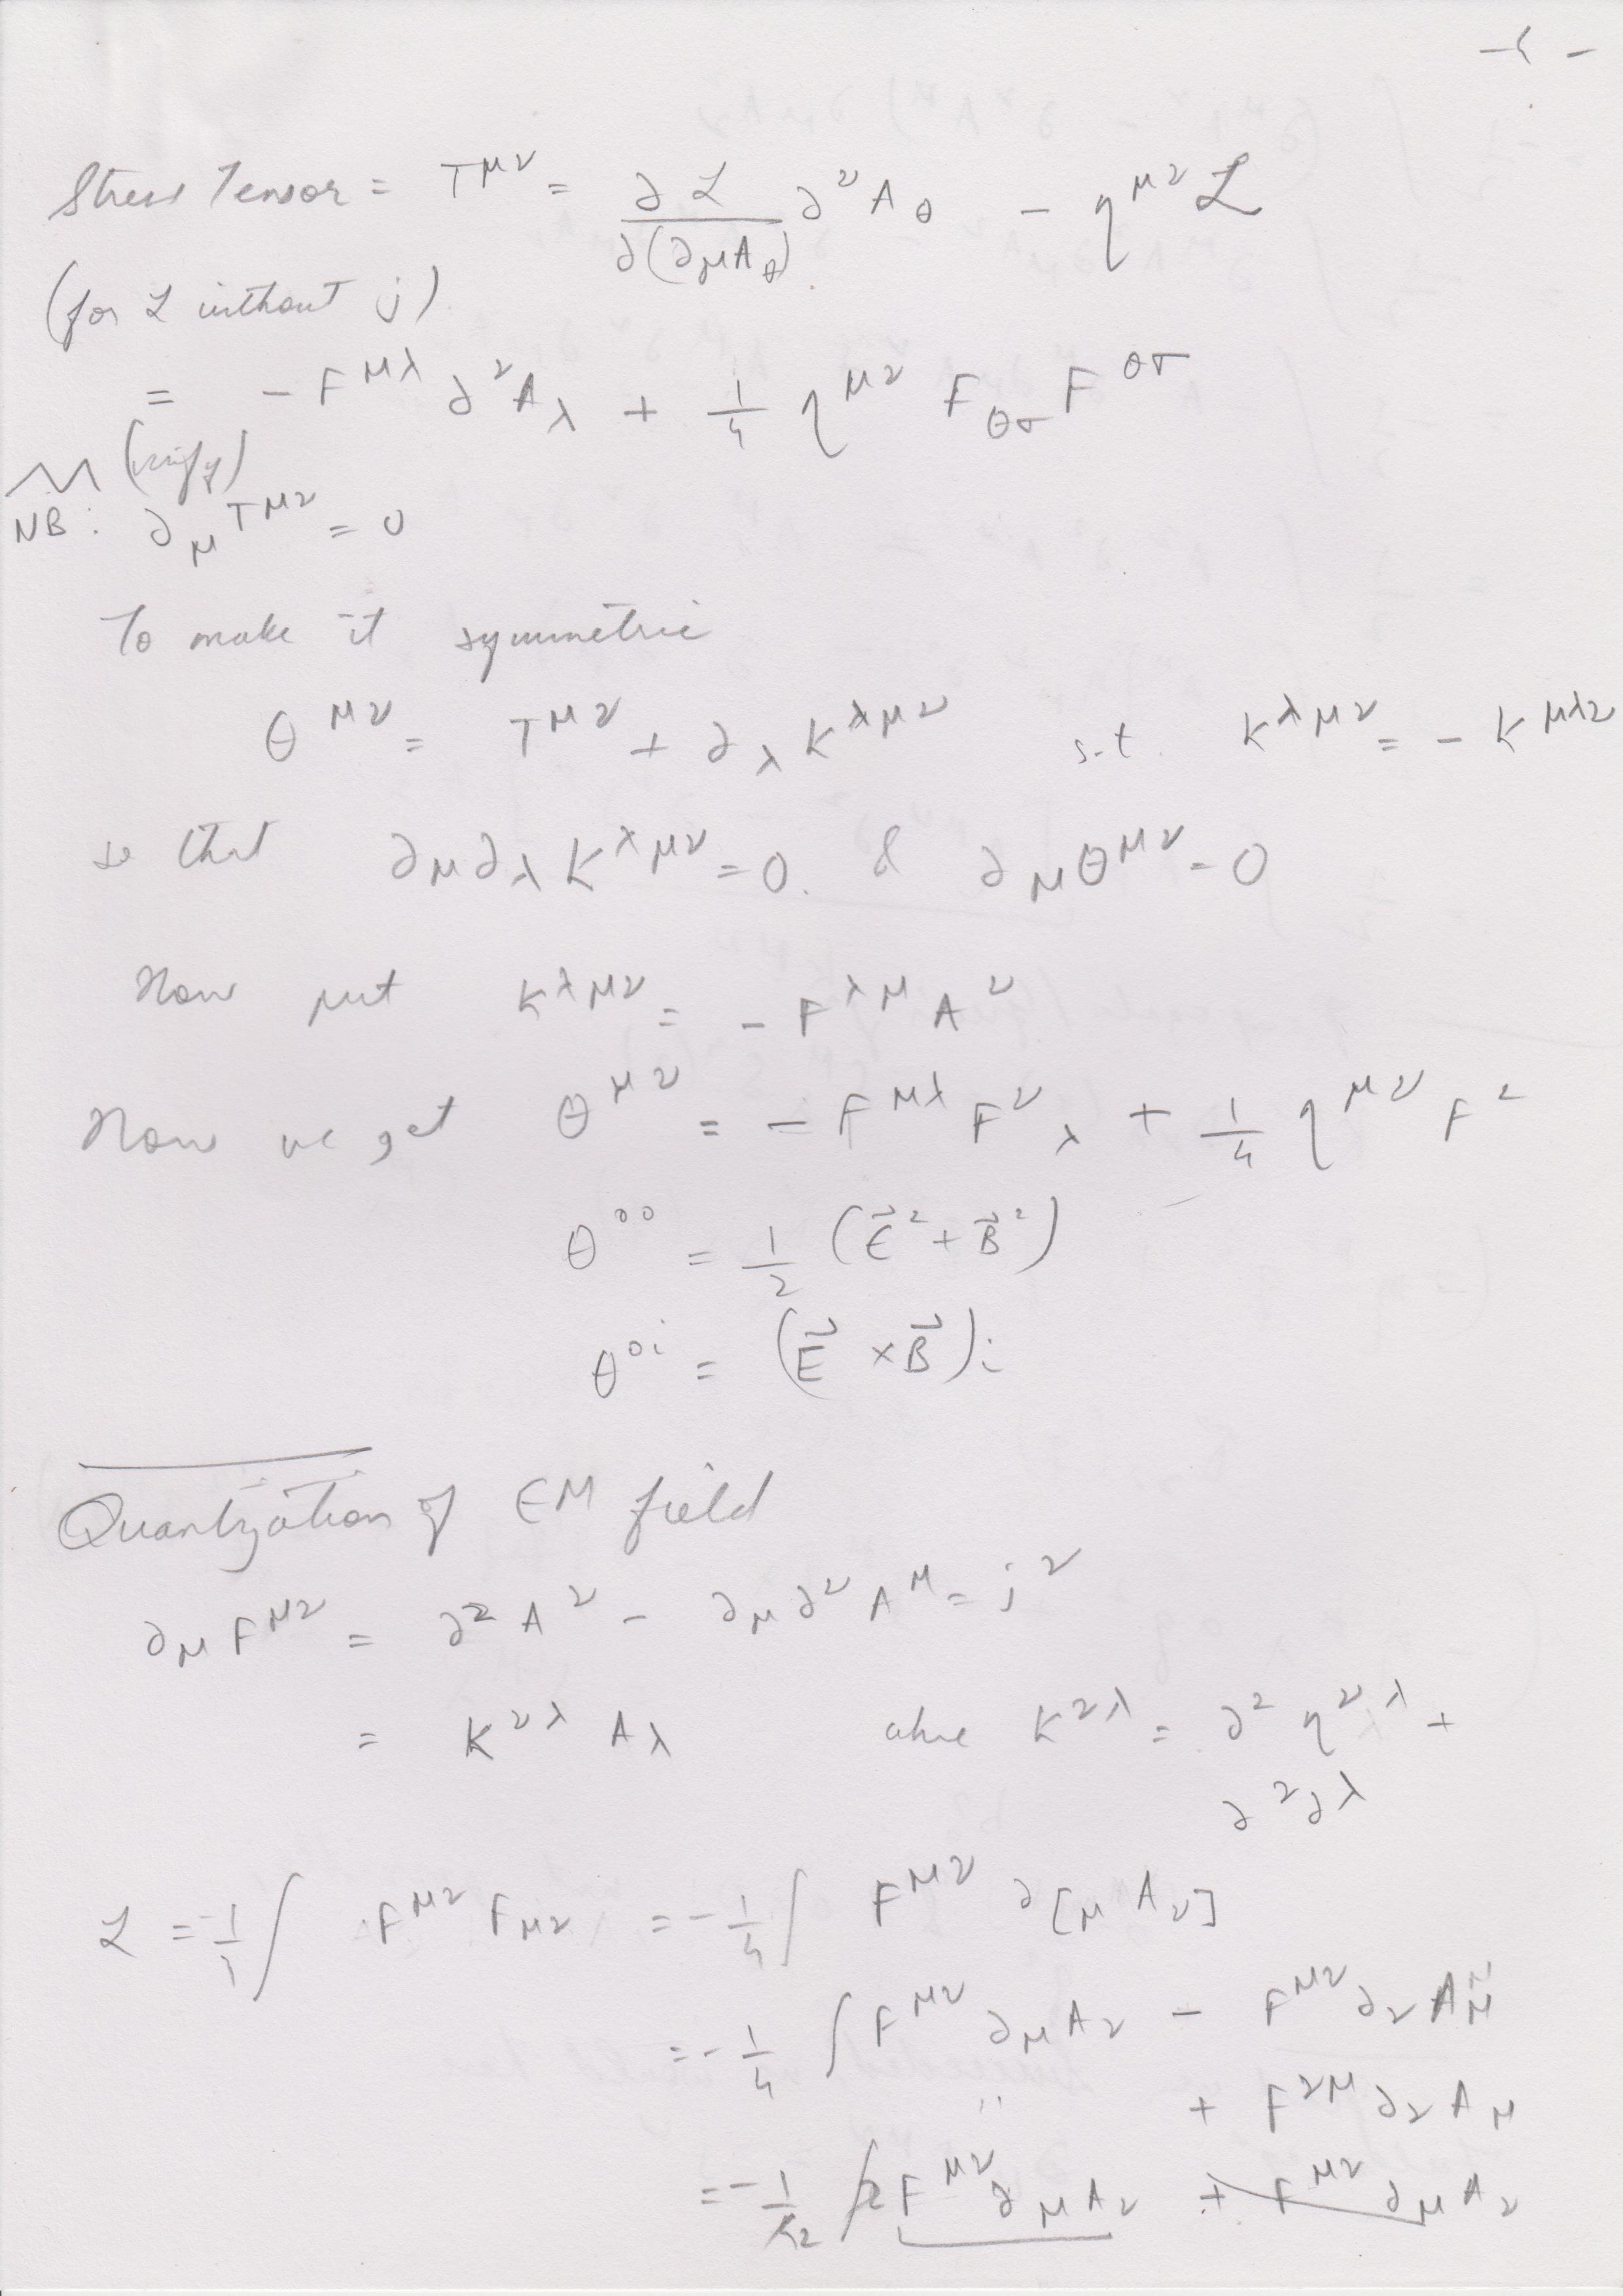 Stress Tensor = T^{μν} = ∂ℒ/∂(∂_μ A_θ) ∂^ν A_θ − η^{μν} ℒ
(for ℒ without j)
= − F^{μλ} ∂^ν A_λ + 1/4 η^{μν} F_{θσ} F^{θσ}
(verify)
NB: ∂_μ T^{μν} = 0
To make it symmetric
θ^{μν} = T^{μν} + ∂_λ K^{λμν} s.t. K^{λμν} = − K^{μλν}
so that ∂_μ ∂_λ K^{λμν} = 0. & ∂_μ θ^{μν} = 0
Now put K^{λμν} = − F^{λμ} A^ν
Now we get θ^{μν} = − F^{μλ} F^ν_λ + 1/4 η^{μν} F^2
θ^{00} = 1/2 (E⃗^2 + B⃗^2)
θ^{0i} = (E⃗ × B⃗)_i
Quantization of EM field
∂_μ F^{μν} = ∂^2 A^ν − ∂_μ ∂^ν A^μ = j^ν
= K^{νλ} A_λ where K^{νλ} = ∂^2 η^{νλ} +
∂^ν ∂^λ
ℒ = −1/4 ∫ F^{μν} F_{μν} = −1/4 ∫ F^{μν} ∂_{[μ} A_{ν]}
= −1/4 ∫ F^{μν} ∂_μ A_ν − F^{μν} ∂_ν A_μ
+ F^{νμ} ∂_ν A_μ
= −1/2 ∫ F^{μν} ∂_μ A_ν + F^{μν} ∂_μ A_ν